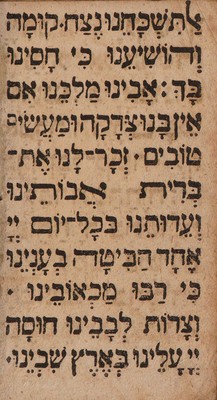 אַל תִּשְׁכָּחֵנוּ נֶצַח · קוּמָה
וְהוֹשִׁיעֵנוּ כִּי חָסִינוּ
בָךְ : אָבִינוּ מַלְכֵּנוּ אִם
אֵין בָּנוּ צְדָקָה וּמַעֲשִׂים
טוֹבִים · זְכָר־לָנוּ אֶת־
בְּרִית אֲבוֹתֵינוּ
וְעֵדוּתֵנוּ בְּכָל־יוֹם יְיָ
אֶחָד הַבִּיטָה בְעָנְיֵנוּ
כִּי רַבּוּ מַכְאוֹבֵינוּ ·
וְצָרוֹת לְבָבֵינוּ חוּסָה
יְיָ עָלֵינוּ בְּאֶרֶץ שִׁבְיֵנוּ ·